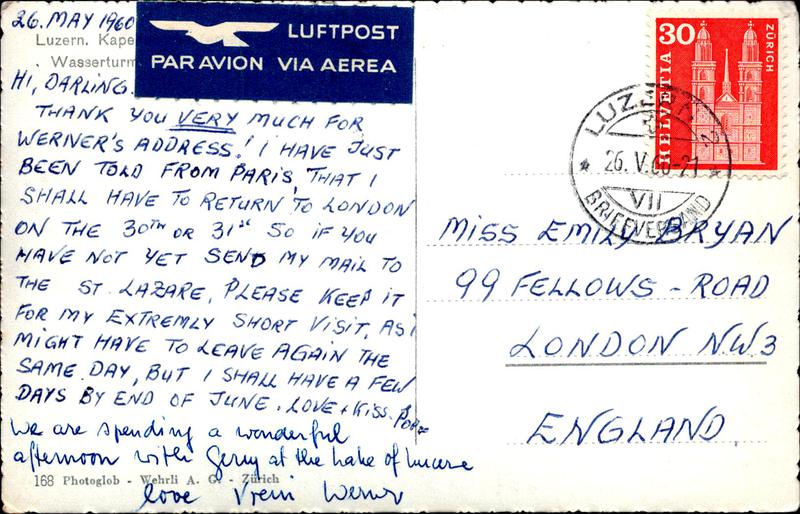 26. MAY 1960
Luzern. Kape
Wasserturm
LUFTPOST
PAR AVION VIA AEREA
HI, DARLING.
THANK YOU VERY MUCH FOR
WERNER'S ADDRESS! I HAVE JUST
BEEN TOLD FROM PARIS, THAT I
SHALL HAVE TO RETURN TO LONDON
ON THE 30TH OR 31st SO IF YOU
HAVE NOT YET SEND MY MAIL TO
THE ST. LAZARE, PLEASE KEEP IT
FOR MY EXTREMLY SHORT VISIT, AS I
MIGHT HAVE TO LEAVE AGAIN THE
SAME DAY, BUT I SHALL HAVE A FEW
DAYS BY END OF JUNE. LOVE + KISS.
We are spending a wonderful
afternoon with Gerry at the lake of lucerne
love Vreni Werner
168 Photoglob - Wehrli A. G. - Zürich
30
HELVETIA
ZÜRICH
LUZERN 2
26.V.60-21
VII
BRIEFVERSAND
MISS EMILY BRYAN
99 FELLOWS - ROAD
LONDON NW3
ENGLAND